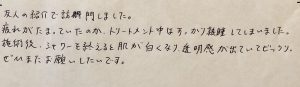 友人の紹介で訪問しました。
疲れがたまっていたのか、トリートメント中はすっかり熟睡してしまいました。
施術後、シャワーを終えると肌が白くなり、透明感が出ていてビックリ。
ぜひまたお願いしたいです。